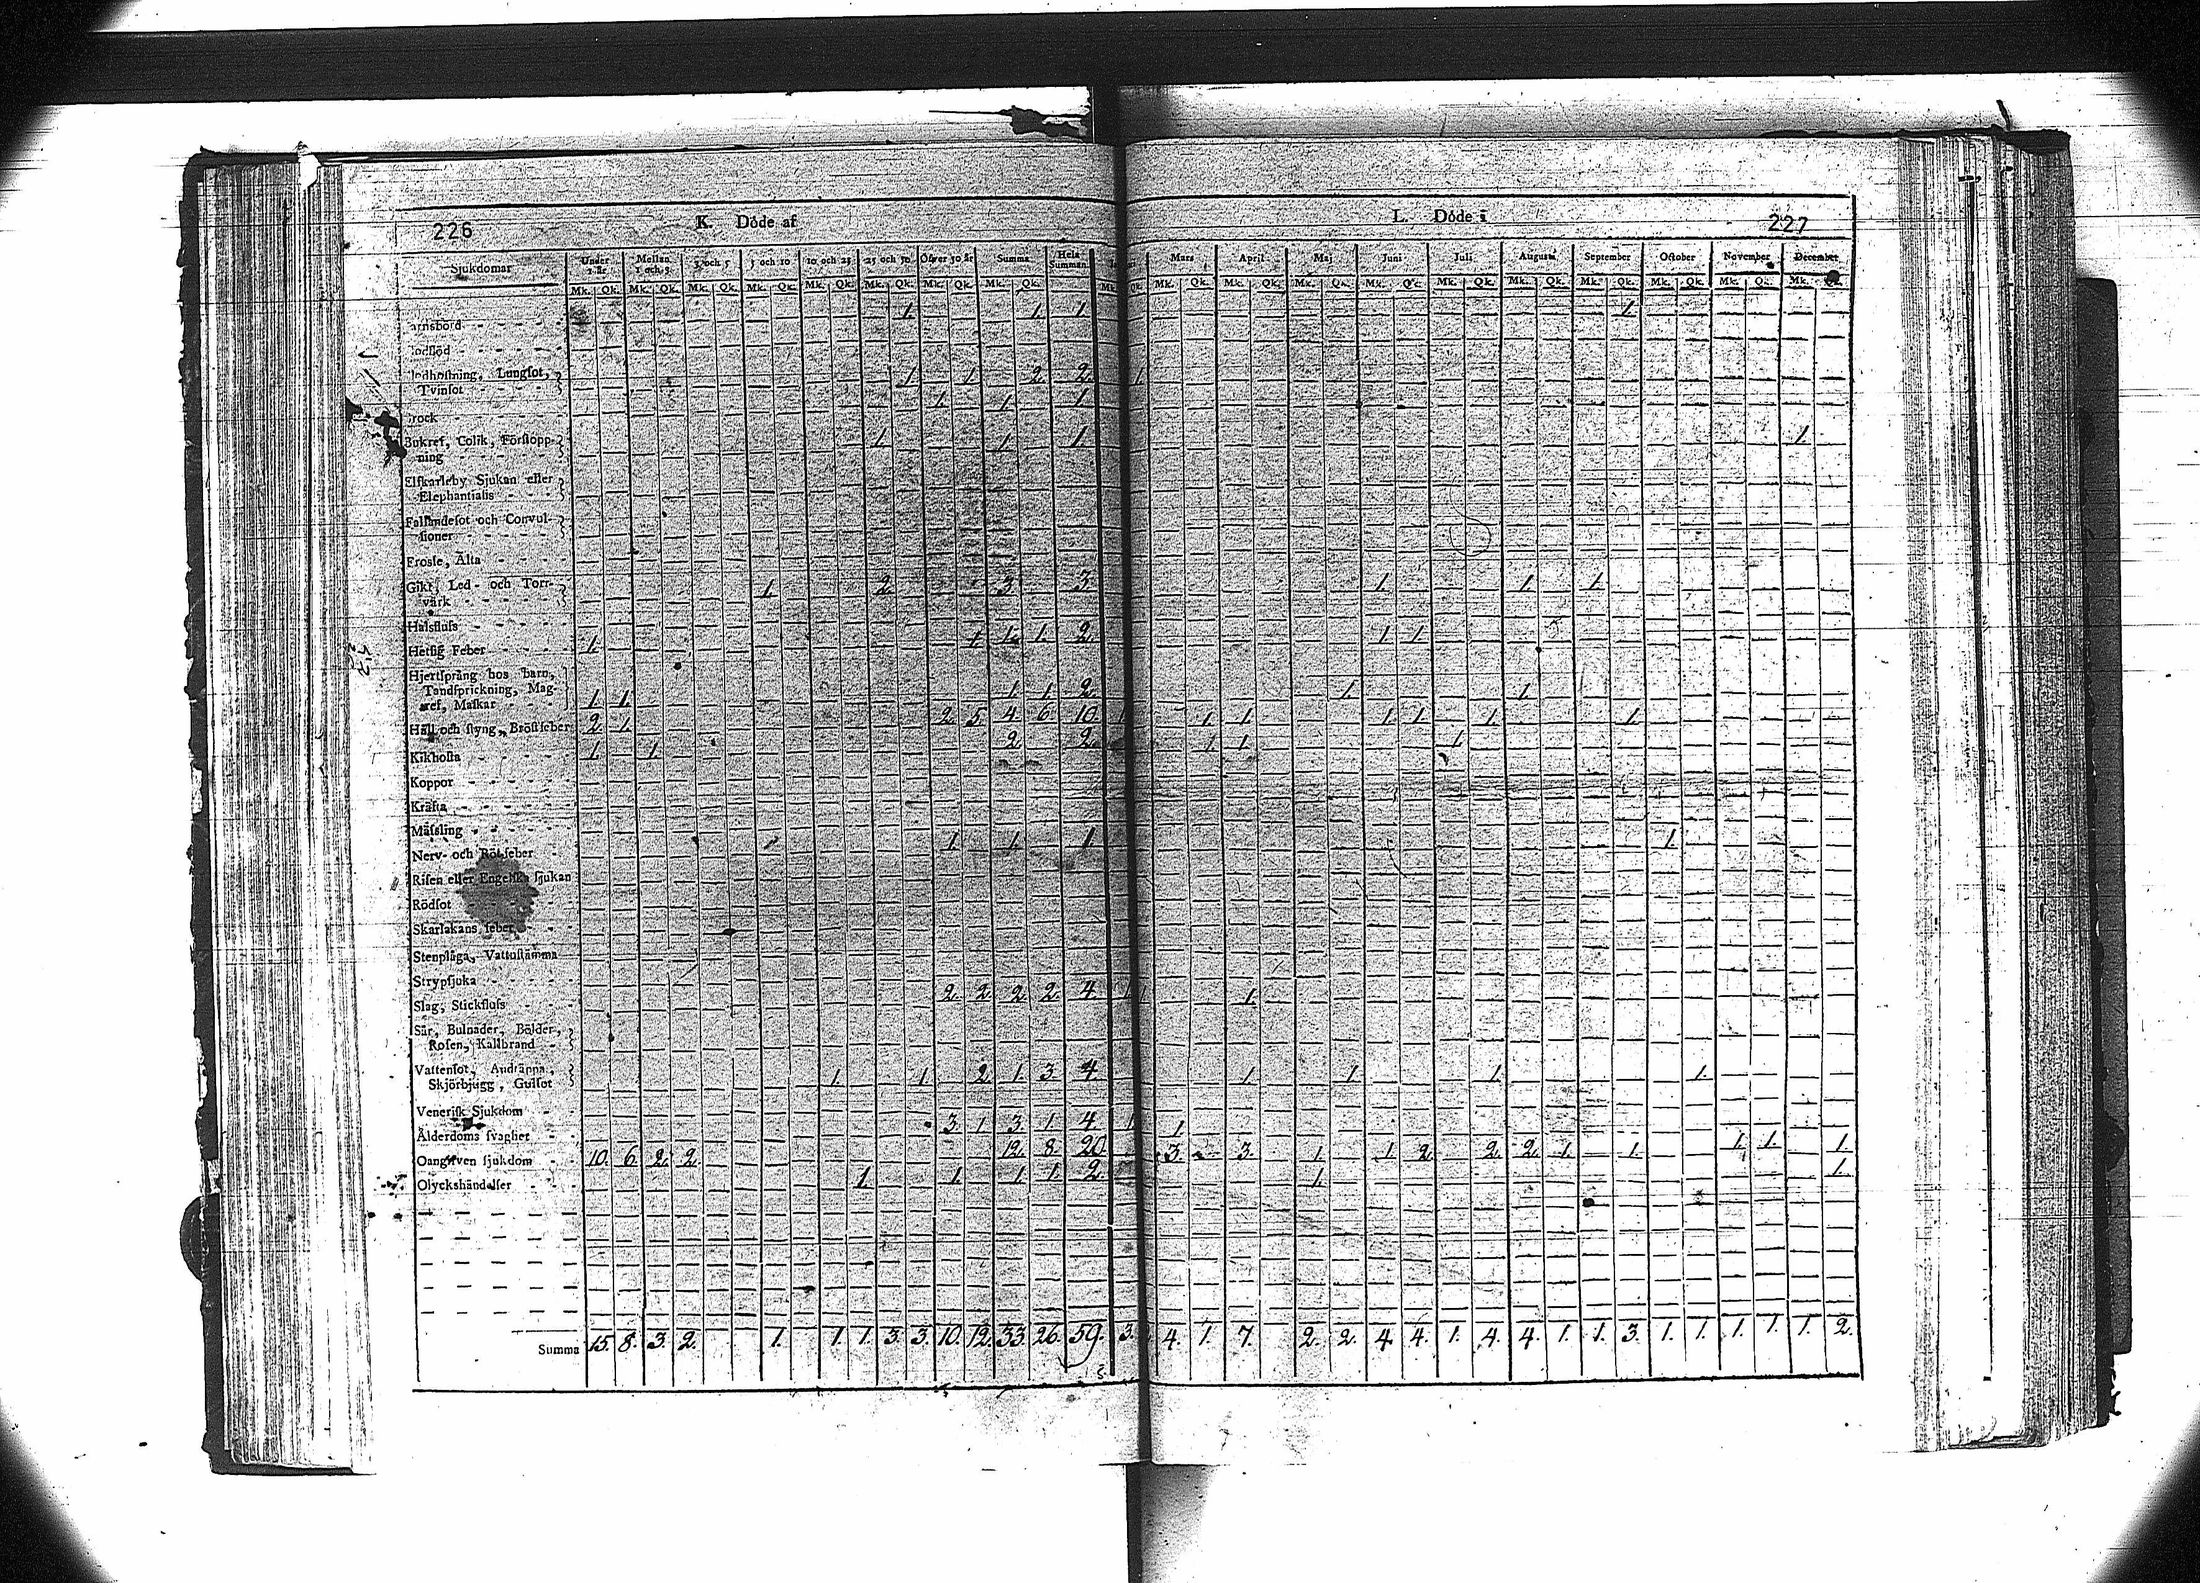 226
K. Döde af
L. Döde i
227
Sjukdomar Under 1 år Mellan 1 och 3 3 och 5 5 och 10 10 och 25 25 och 50 Öfver 50 år Summa Hela Summan. Mars April Maj Juni Juli Augusti September October November December
Mk. Qk. Mk. Qk. Mk. Qk. Mk. Qk. Mk. Qk. Mk. Qk. Mk. Qk. Mk. Qk. Mk. Qk. Mk. Qk. Mk. Qk. Mk. Qk. Mk. Qk. Mk. Qk. Mk. Qk. Mk. Qk. Mk. Qk. Mk. Qk. Mk.
arnsbörd 1. 1. 1. 1.
lodflöd
lodhostning, Lungsot,
Tvinsot 1. 1. 2. 2. 1.
rock 1. 1. 1
Bukref, Colik, Förstopp-
ning 1. 1. 1. 1.
Elfkarleby Sjukan eller
Elephantiasis
Fallandesot och Convul-
sioner
Frossa, Älta
Gikt, Led- och Torr-
värk 1. 2. 3. 3. 1. 1. 1.
Halsfluss
Hetsig Feber 1. 1. 1. 1. 2. 1. 1.
Hjertsprång hos barn,
Tandsprickning, Mag-
ref, Maskar 1. 1. 1. 1. 2. 1. 1.
Håll och styng, Bröstfeber 2. 1. 2. 5. 4. 6. 10. 1. 1. 1. 1. 1. 1. 1.
Kikhosta 1. 1. 2. 2. 1. 1. 1.
Koppor
Kräfta
Mässling
Nerv- och Rötfeber 1. 1. 1. 1.
Risen eller Engelska sjukan
Rödsot
Skarlakans feber
Stenplåga, Vattustämma
Strypsjuka
Slag, Stickfluss 2. 2. 2. 2. 4. 1. 1.
Sår, Bulnader, Bölder,
Rosen, Kallbrand
Vattensot, Andtäppa,
Skjörbjugg, Gulsot 1. 1. 2. 1. 3. 4. 1. 1. 1. 1.
Venerisk Sjukdom
Ålderdoms svaghet 3. 1 3. 1. 4. 1. 1.
Oangifven sjukdom 10. 6. 2. 2. 12. 8. 20. 3. 3. 1. 1. 2. 2. 2. 1. 1. 1. 1. 1.
Olyckshändelser 1. 1. 1. 1. 2. 1. 1.
Summa 15. 8. 3. 2. 1. 1. 1. 3. 3. 10. 12. 33. 26. 59. 3. 4. 1. 7. 2. 2. 4. 4. 1. 4. 4. 1. 1. 3. 1. 1. 1. 1. 1. 2.